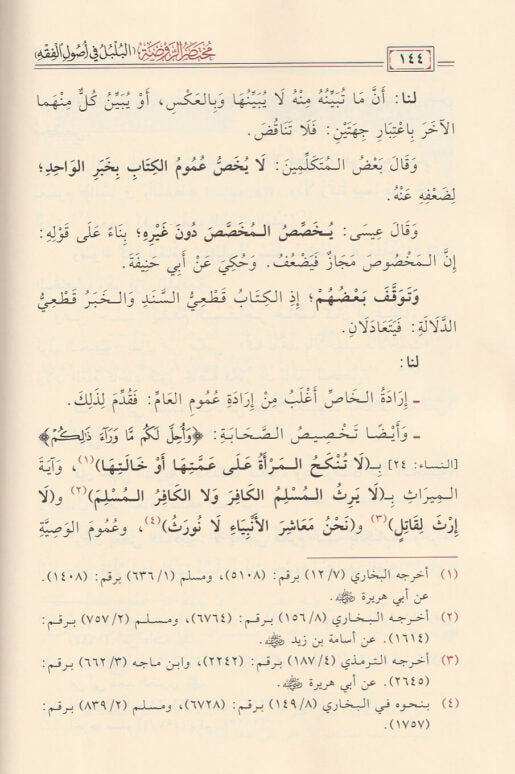 مُخْتَصَرُ الرَّوْضَةِ، (البُلْبُلُ فِي أُصُولِ الفِقْهِ)
١٤٤
لنا: أَنَّ مَا تُبَيِّنُهُ مِنْهُ لَا يُبَيِّنُهَا وَبِالعَكْسِ، أَوْ يُبَيِّنُ كُلٌّ مِنْهُمَا
الآخَرَ بِاعْتِبَارِ جِهَتَيْنِ: فَلَا تَنَاقُضَ.
وَقَالَ بَعْضُ المُتَكَلِّمِينَ: لَا يُخَصُّ عُمُومُ الكِتَابِ بِخَبَرِ الوَاحِدِ؛
لِضَعْفِهِ عَنْهُ.
وَقَالَ عِيسَى: يُخَصِّصُ المُخَصَّصَ دُونَ غَيْرِهِ؛ بِنَاءً عَلَى قَوْلِهِ:
إِنَّ المَخْصُوصَ مَجَازٌ فَيَضْعُفُ. وَحُكِيَ عَنْ أَبِي حَنِيفَةَ.
وَتَوَقَّفَ بَعْضُهُمْ؛ إِذِ الكِتَابُ قَطْعِيُّ السَّنَدِ وَالخَبَرُ قَطْعِيُّ
الدَّلَالَةِ: فَيَتَعَادَلَانِ.
لنا:
ـ إِرَادَةُ الخَاصِّ أَغْلَبُ مِنْ إِرَادَةِ عُمُومِ العَامِّ: فَقُدِّمَ لِذَلِكَ.
ـ وَأَيْضًا تَخْصِيصُ الصَّحَابَةِ: ﴿وَأُحِلَّ لَكُم مَّا وَرَآءَ ذَٰلِكُمْ﴾
[النساء: ٢٤] بِـ(لَا تُنْكَحُ المَرْأَةُ عَلَى عَمَّتِهَا أَوْ خَالَتِهَا)(١)، وَآيَةَ
المِيرَاثِ بِـ(لَا يَرِثُ المُسْلِمُ الكَافِرَ وَلا الكَافِرُ المُسْلِمَ)(٢) و(لَا
إِرْثَ لِقَاتِلٍ)(٣) و(نَحْنُ مَعَاشِرَ الأَنْبِيَاءِ لَا نُورَثُ)(٤)، وعُمُومَ الوَصِيَّةِ
(١) أخرجه البخاري (١٢/٧) برقم: (٥١٠٨)، ومسلم (٦٣٦/١) رقم: (١٤٠٨).
عن أبي هريرة ﷺ.
(٢) أخرجه البخاري (١٥٦/٨) برقم: (٦٧٦٤)، ومسلم (٧٥٧/٢) برقم:
(١٦١٤). عن أسامة بن زيد ﷺ.
(٣) أخرجه الترمذي (١٨٧/٤) برقم: (٢٢٤٢)، وابن ماجه (٦٦٢/٣) برقم:
(٢٦٤٥). عن أبي هريرة ﷺ.
(٤) بنحوه في البخاري (١٤٩/٨) برقم: (٦٧٢٨)، ومسلم (٨٣٩/٢) برقم:
(١٧٥٧).